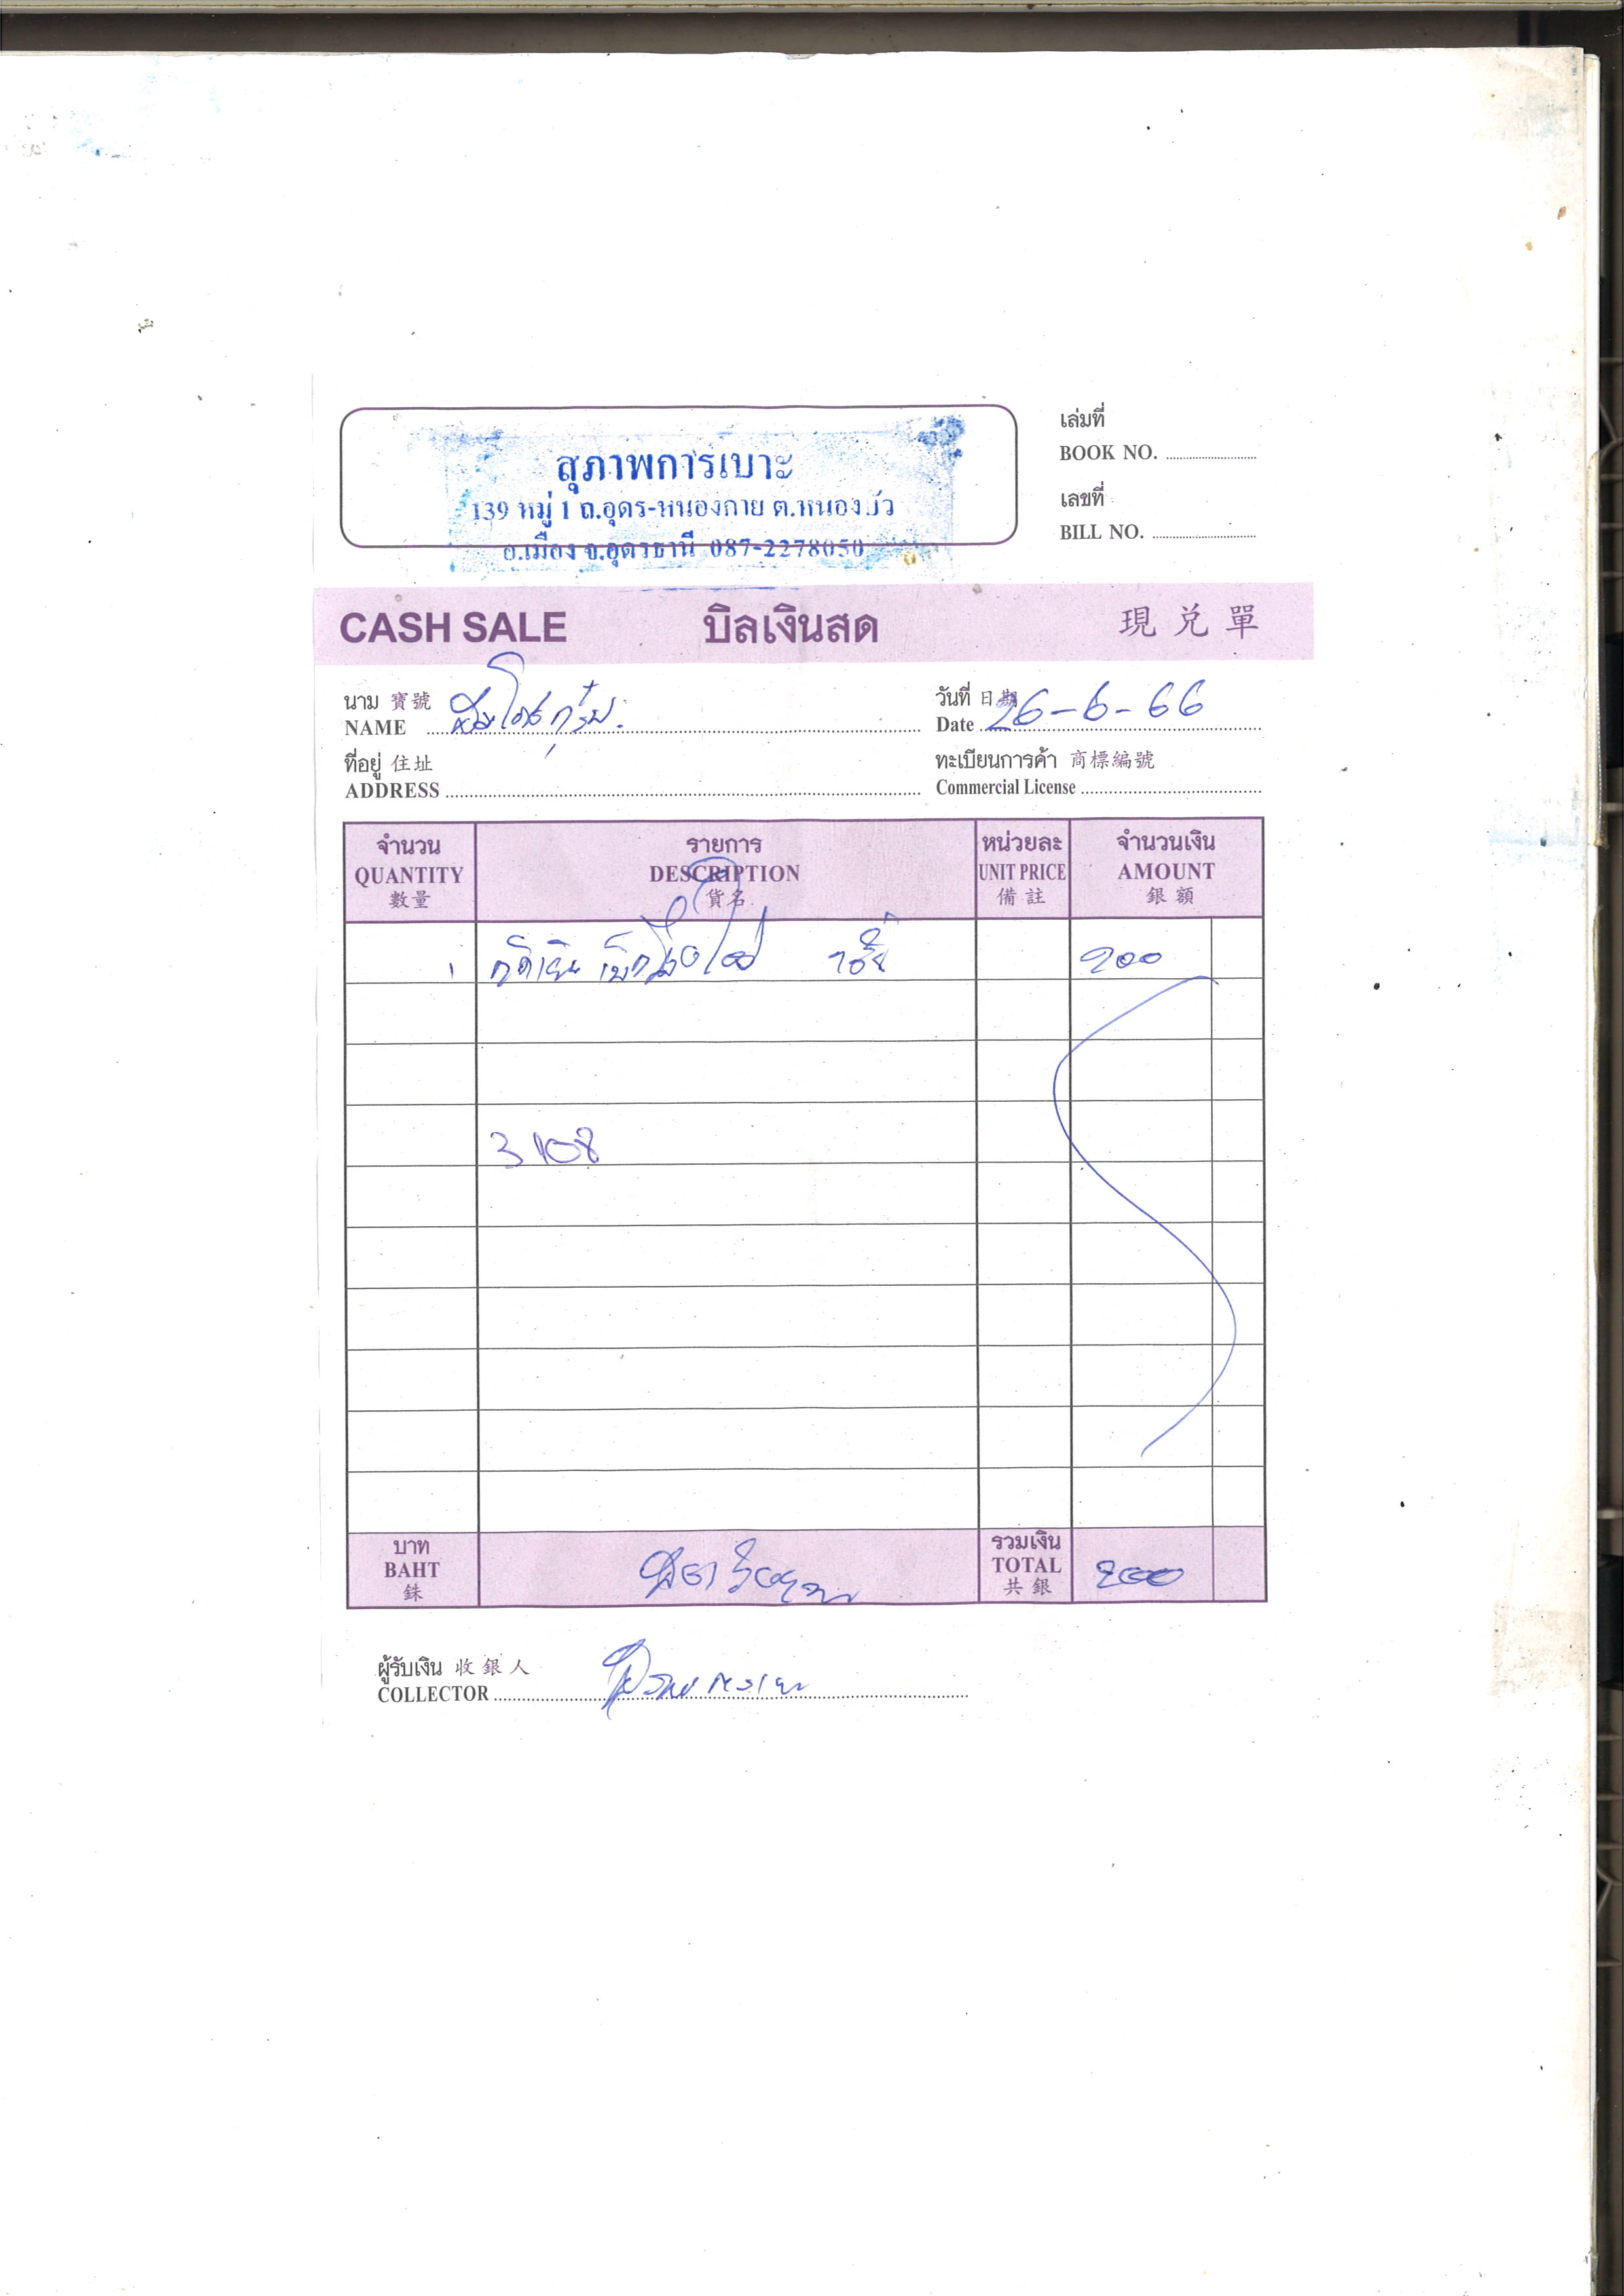 เล่มที่
BOOK NO.
เลขที่
BILL NO.
สุภาพการเบาะ
139 หมู่ 1 ถ.อุดร-หนองคาย ต.หนองบัว
อ.เมือง จ.อุดรธานี 087-2278050
CASH SALE บิลเงินสด 現兌單
นาม 寶號
NAME
วันที่ 日期
Date 26-6-66
ที่อยู่ 住址
ADDRESS
ทะเบียนการค้า 商標編號
Commercial License
จำนวน รายการ หน่วยละ จำนวนเงิน
QUANTITY DESCRIPTION UNIT PRICE AMOUNT
數量 貨名 備註 銀額
1 200
3108
บาท รวมเงิน
BAHT TOTAL 200
銖 共銀
ผู้รับเงิน 收銀人
COLLECTOR